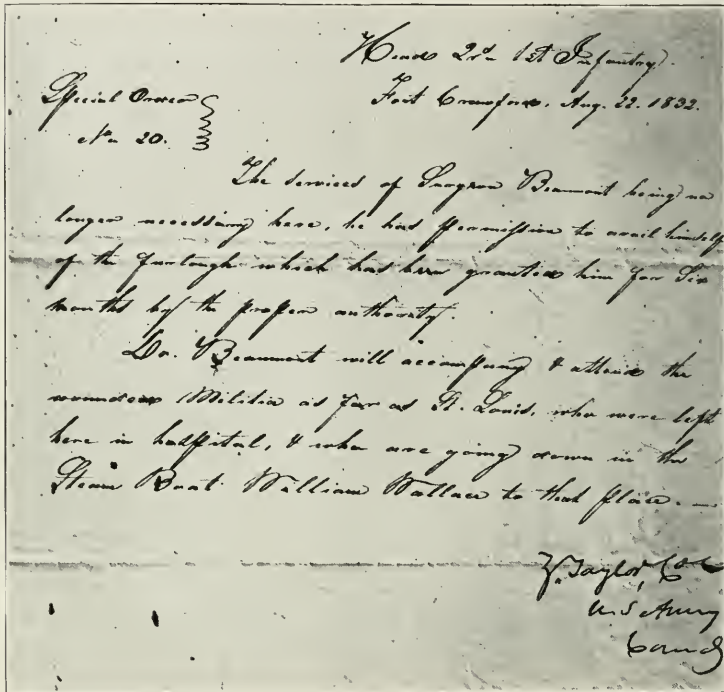 Head Qrs. 1st Infantry.
Fort Crawford, Aug. 22. 1832.
Special Order
No 20.
The services of Surgeon Beaumont being no
longer necessary here, he has permission to avail himself
of the furlough which has been granted him for Six
months by the proper authority.
Dr. Beaumont will accompany & attend the
wounded Militia as far as St. Louis, who were left
here in hospital, & who are going down in the
Steam Boat William Wallace to that place. —
Z. Taylor, Col
U.S Army
Comdg